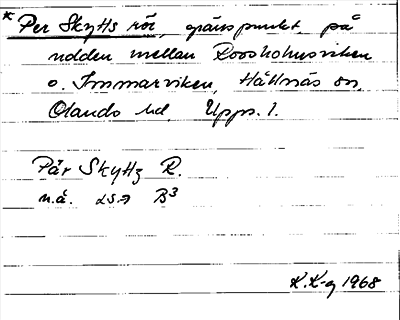 * Per Skytts rör, gränspunkt, på
udden mellan Rossholmsviken
o. Immarviken, Hållnäs sn,
Olands hd Upps. l.
Pär Skyttz R.
n.å. LSA B³
K.K-g 1968